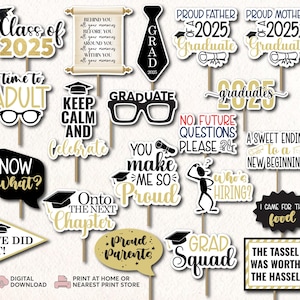 Class of
2025
BEHIND YOU
all your memories
BEFORE YOU
all your dreams
AROUND YOU
WITHIN YOU
GRAD
2025
PROUD FATHER
OF A
2025
Graduate
PROUD MOTHER
OF A
2025
Graduate
time to
ADULT
KEEP
CALM
AND
Celebrate
GRADUATE
2025
graduates
NO FUTURE
QUESTIONS
PLEASE
A SWEET ENDING
to a
NEW BEGINNING
NOW
what?
YOU
make
ME SO
Proud
who's
HIRING?
I CAME FOR THE
food
Onto
THE NEXT
Chapter
WE DID
IT!
Proud
Parents
GRAD
Squad
THE TASSEL
WAS WORTH
THE HASSEL
DIGITAL
DOWNLOAD
PRINT AT HOME OR
NEAREST PRINT STORE